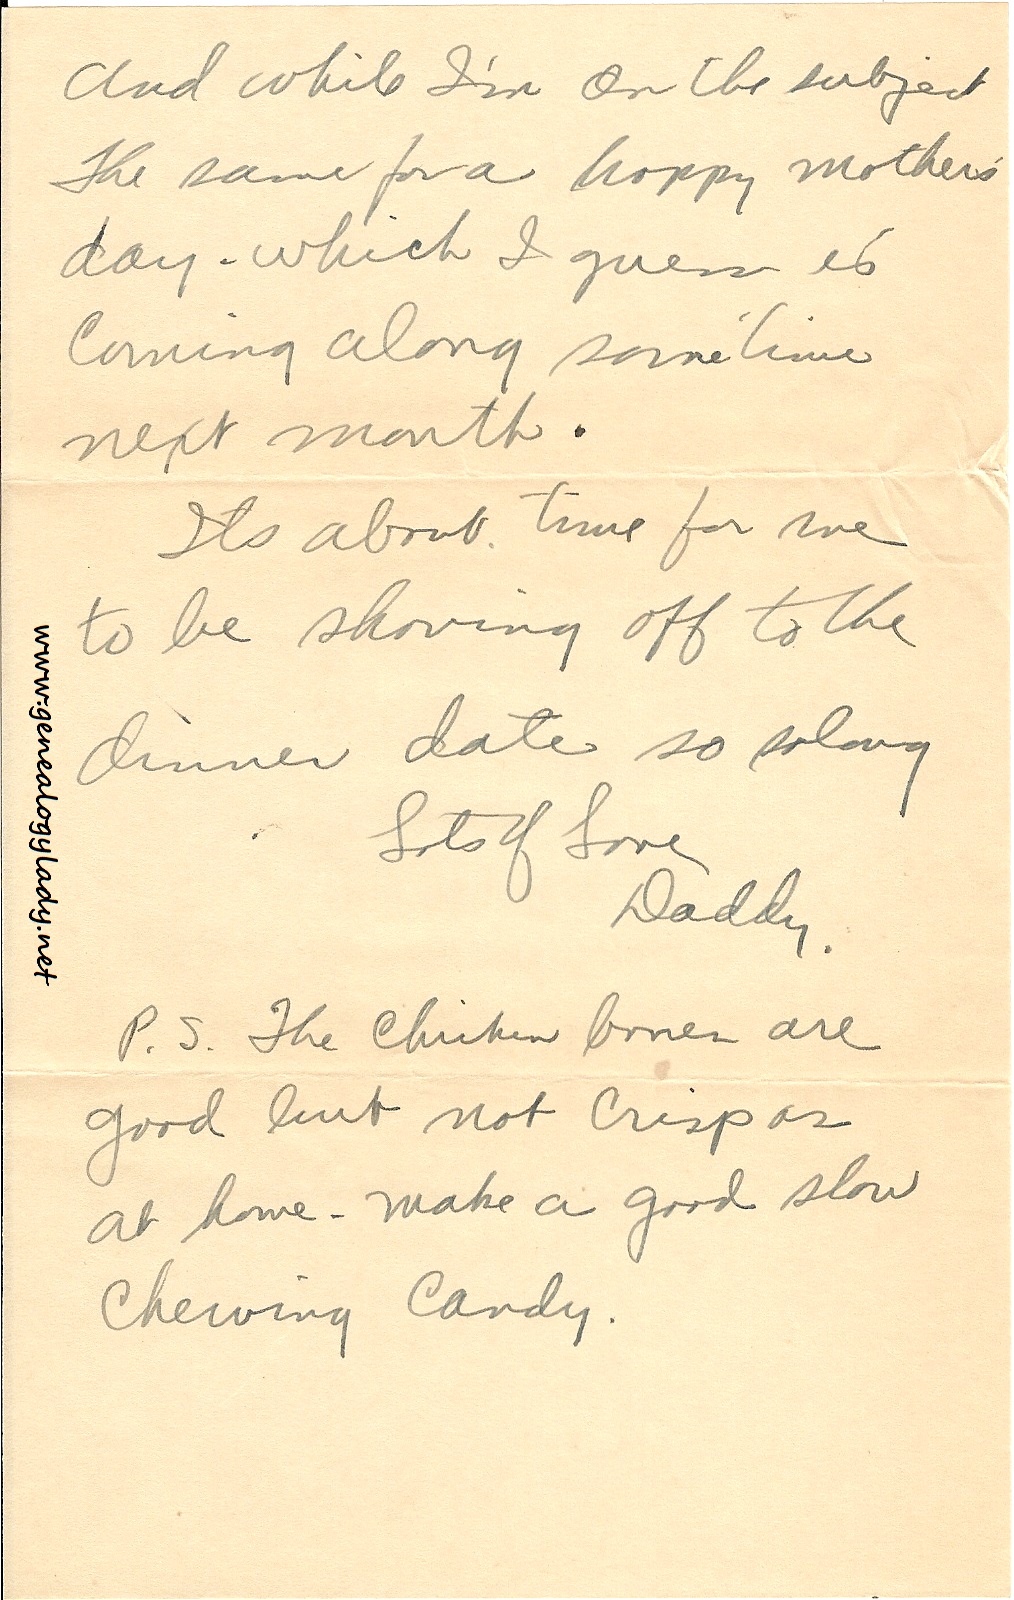 And while I'm on the subject
the same for a happy mother's
day - which I guess is
coming along sometime
next month.
Its about time for me
to be shoving off to the
dinner date so solong
Lots of Love
Daddy.
P.S. The chicken bones are
good but not crisp as
at home - make a good slow
chewing candy.
www.genealogylady.net